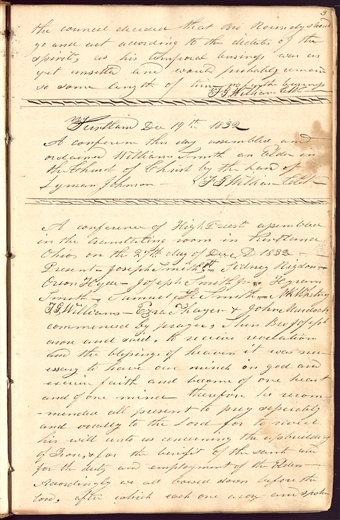 3
the council decided that Bro Kennedy should
go and act according to the dictates of the
spirit, as his temporal bussiness was as
yet unsettled and would probably remain
so some length of time
F G Williams Clk
Kirtland Dec 19th 1832
A conference this day assembled and
ordained William Smith an Elder in
the Church of Christ by the hand of
Lyman Johnson —
F G Williams Clk
A conference of High Priests assembled
in the translating room in Kirtland
Ohio on the 27th day of Dec AD 1832 —
Present — Joseph Smith Sidney Rigdon
Orson Hyde — Joseph Smith jr — Hyrum
Smith — Samuel H. Smith — N K Whitney
F G Williams — Ezra Thayer & John Murdock
commenced by prayer, Then Bro Joseph
arose and said, to receive revelation
and the blessings of heaven it was nec-
essary to have our minds on god and
exercise faith and become of one heart
and of one mind therefore he recom-
mended all present to pray seperately
and vocally to the Lord for to reveal
his will unto us concerning the upbuilding
of Zion, & for the benefit of the saints and
for the duty and employment of the Elders
Accordingly we all bowed down before the
Lord, after which each one arose and spoke